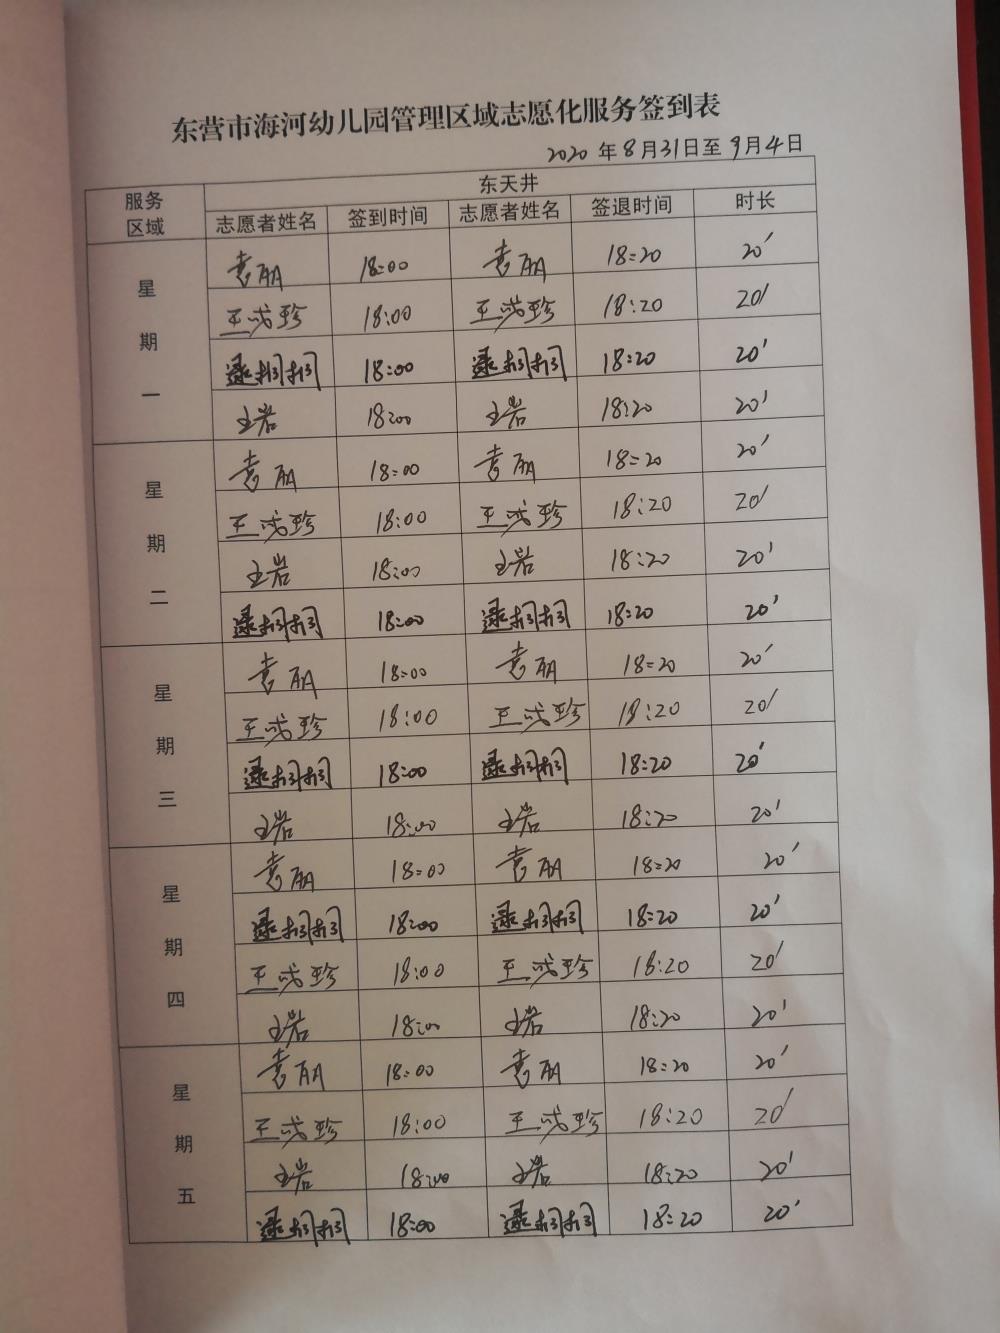 东营市海河幼儿园管理区域志愿化服务签到表
2020 年 8 月 31 日至 9 月 4 日
服务区域 东天井
志愿者姓名 签到时间 志愿者姓名 签退时间 时长
星期一
袁丽 18:00 袁丽 18:20 20'
王成珍 18:00 王成珍 18:20 20'
逯桐桐 18:00 逯桐桐 18:20 20'
王岩 18:00 王岩 18:20 20'
星期二
袁丽 18:00 袁丽 18:20 20'
王成珍 18:00 王成珍 18:20 20'
王岩 18:00 王岩 18:20 20'
逯桐桐 18:00 逯桐桐 18:20 20'
星期三
袁丽 18:00 袁丽 18:20 20'
王成珍 18:00 王成珍 18:20 20'
逯桐桐 18:00 逯桐桐 18:20 20'
王岩 18:00 王岩 18:20 20'
星期四
袁丽 18:00 袁丽 18:20 20'
逯桐桐 18:00 逯桐桐 18:20 20'
王成珍 18:00 王成珍 18:20 20'
王岩 18:00 王岩 18:20 20'
星期五
袁丽 18:00 袁丽 18:20 20'
王成珍 18:00 王成珍 18:20 20'
王岩 18:00 王岩 18:20 20'
逯桐桐 18:00 逯桐桐 18:20 20'